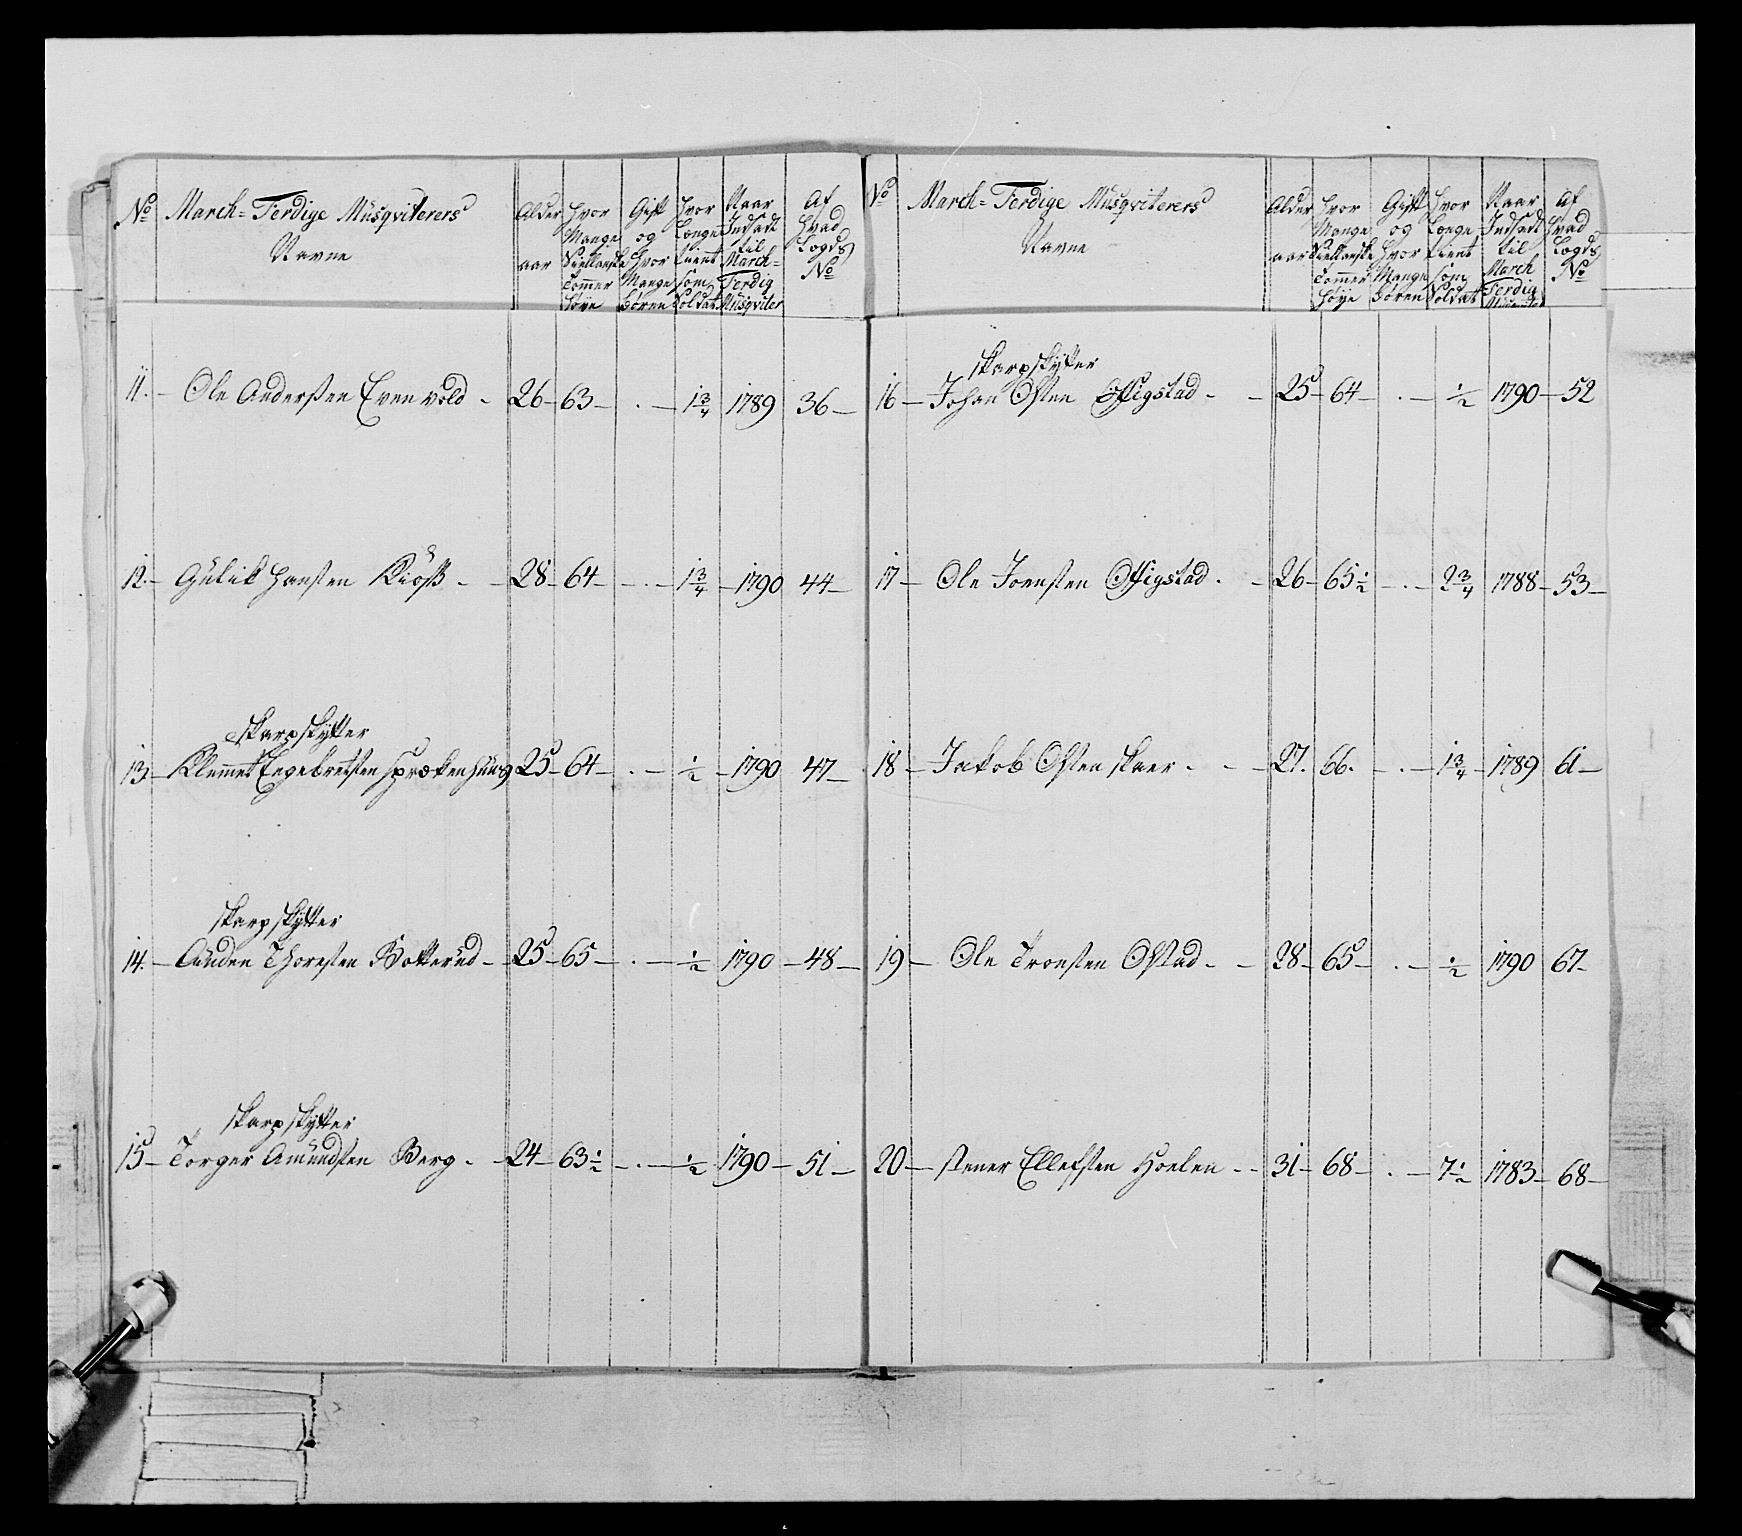 No March-Ferdige Musqviterers Navne
Alder aar
Hvor Mange Siellanske Tommer Høye
Gift og Hvor Mange Børen
Hvor Længe tient som Soldat
Naar Indsadt til March-Ferdig Musqviter
Af Hvad Lægds No
11. – Ole Andersen Evenvold – 26 – 63 – . – 1 3/4 1789 36 –
12. – Gulik Hansen Kiøss – 28 – 64 – . – 1 3/4 – 1790 44 –
skarpskytter
13 – Klemmet Engebretsen Sprækenhuus 25 – 64 – . – 1/2 – 1790 47 –
skarpskytter
14. – Auden Thoresen Botterud – 25 – 65 – . – 1/2 1790 – 48 –
skarpskytter
15 – Torger Amundsen Berg – 24 – 63 1/2 – . – 1/2 1790 – 51 –
No March-Ferdige Musqviterers Navne
Alder aar
Hvor Mange Siellanske Tommer Høye
Gift og Hvor Mange Børen
Hvor Længe tient som Soldat
Naar Indsadt til March Ferdig Musqviter
Af Hvad Lægds No
skarpskytter
16 – Johan Olsen – 25 – 64 – . – 1/2 1790 – 52
17 – Ole Joensen – 26 – 65 1/2 – . – 2 3/4 1788 – 53 –
18 – Jakob Olsen Skaer – 27. 66. – . – 1 3/4 – 1789 61 –
19 – Ole Tronsen – 28 – 65 – . – 1/2 1790 67 –
20 – Stener Ellefsen Hoelen – 31 – 68 – . – 7 1/2 1783 – 68 –